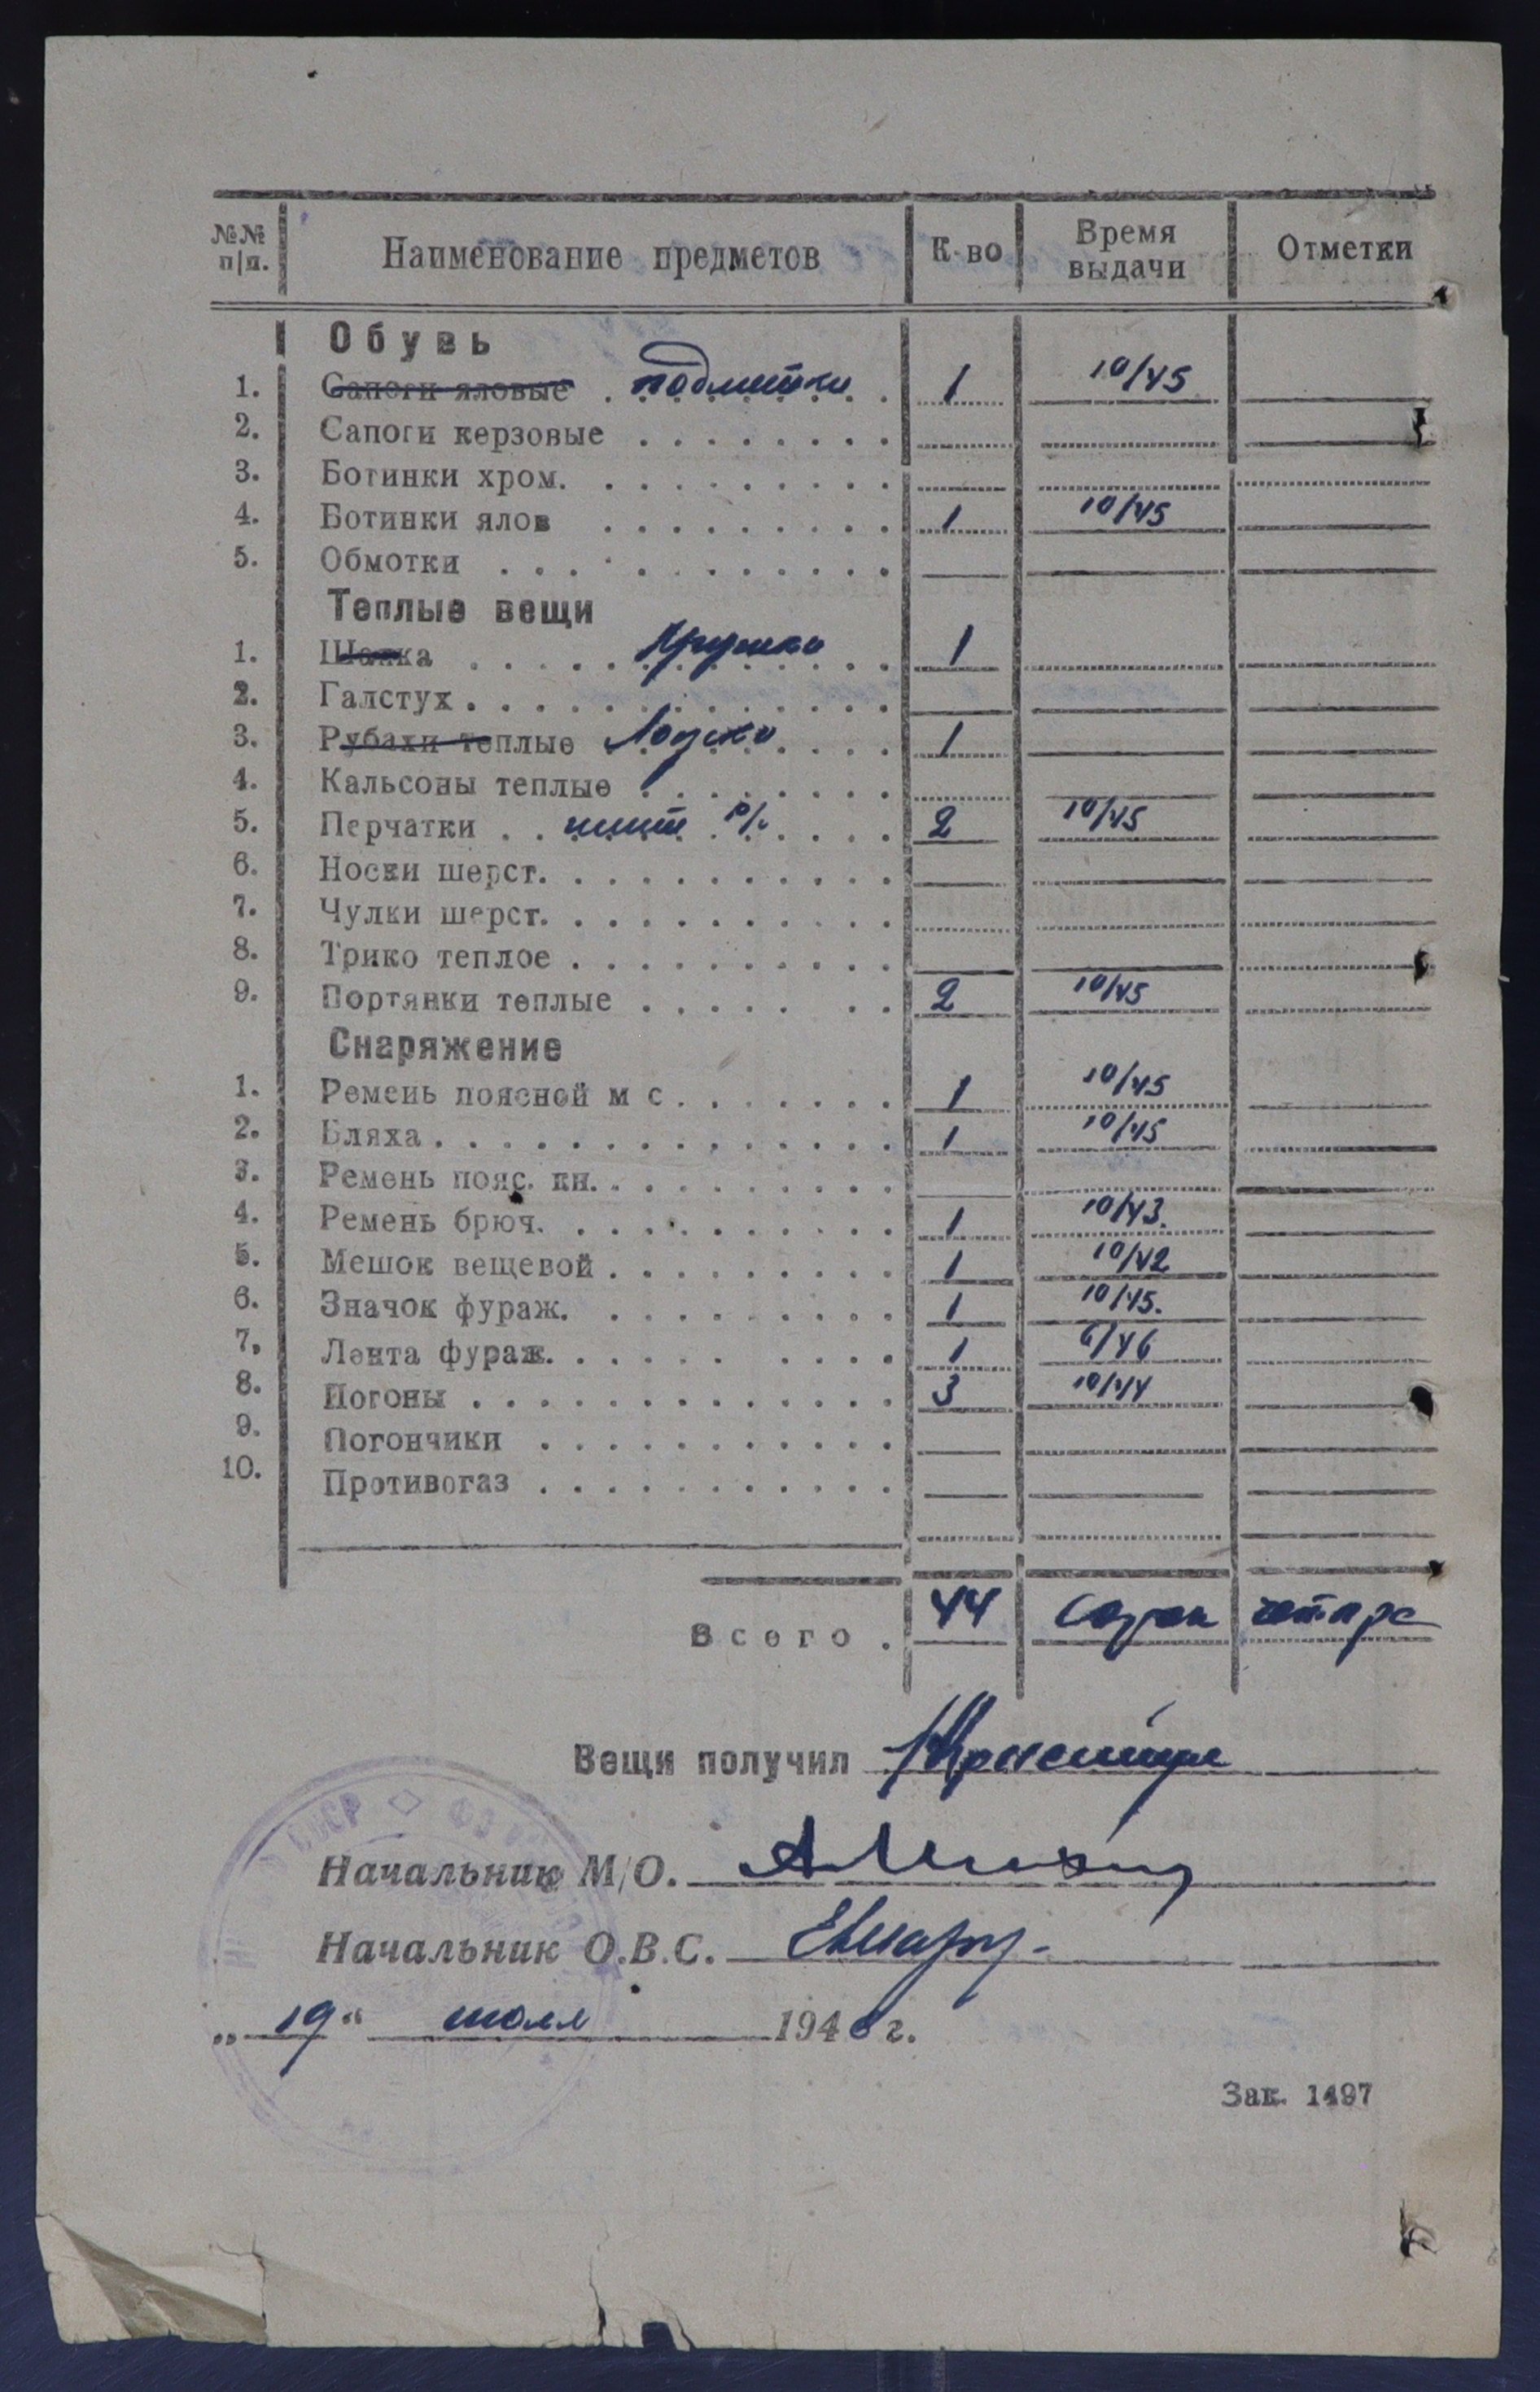 №№ п/п. Наименование предметов К-во Время выдачи Отметки
Обувь
1. Сапоги яловые подметки 1 10/45
2. Сапоги керзовые
3. Ботинки хром.
4. Ботинки ялов 1 10/45
5. Обмотки
Теплые вещи
1. Шапка кружка 1
2. Галстух
3. Рубахи теплые Ложка 1
4. Кальсоны теплые
5. Перчатки 2 10/45
6. Носки шерст.
7. Чулки шерст.
8. Трико теплое
9. Портянки теплые 2 10/45
Снаряжение
1. Ремень поясной м с 1 10/45
2. Бляха 1 10/45
3. Ремень пояс. кн.
4. Ремень брюч. 1 10/43.
5. Мешок вещевой 1 10/42
6. Значок фураж. 1 10/45.
7. Лента фураж. 1 6/46
8. Погоны 3 10/44
9. Погончики
10. Противогаз
Всего. 44 сорок четыре
Вещи получил
Начальник М/О.
Начальник О.В.С.
„19“ июля 1946 г.
Зак. 1497
СССР